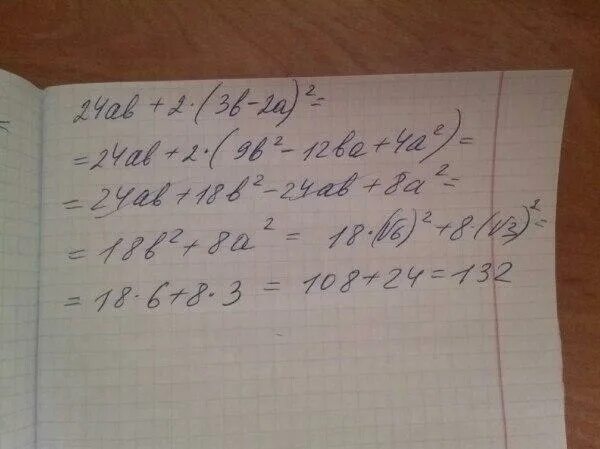 24ab + 2·(3b-2a)²=
=24ab+2·(9b²-12ba+4a²)=
=24ab+18b²-24ab+8a²=
=18b²+8a² = 18·(√6)²+8·(√3)²=
=18·6+8·3 = 108+24=132